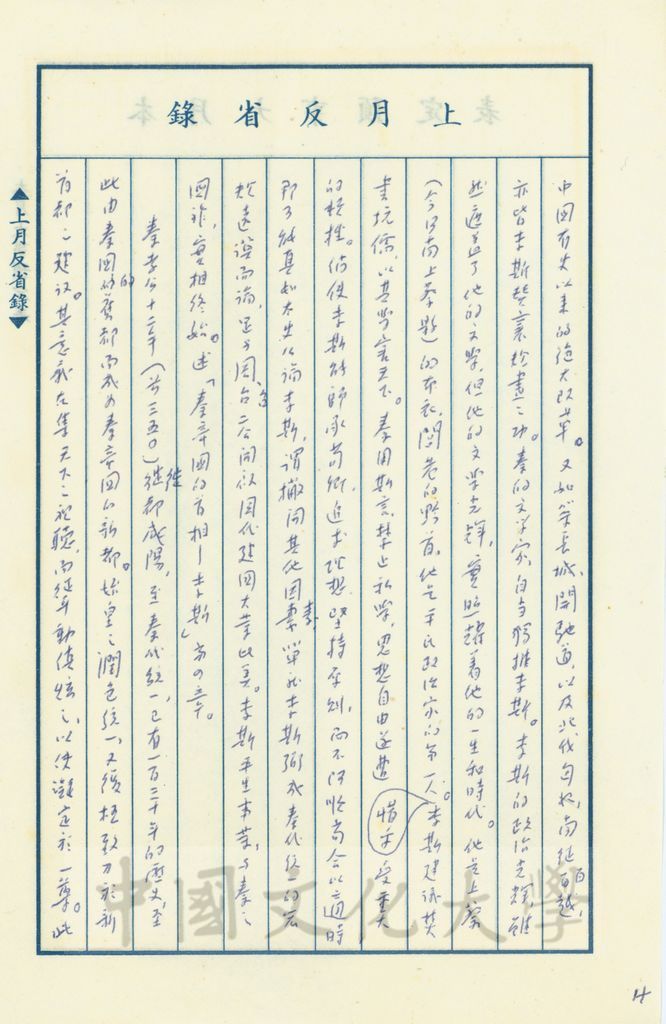 上月反省錄
中國有史以來的絕大改革。又如築長城、開馳道，以及北伐匈奴，南征百越，
亦皆李斯贊襄擘畫之功。秦的文學家，自當獨推李斯。李斯的政治光輝，雖
然遮蓋了他的文學，但他的文學光輝，實照耀着他的一生和時代。他是上蔡
（今河南上蔡縣）的布衣，閭巷的黔首，他是平民政治家的第一人。李斯建議焚
書坑儒，以其學害天下。秦用斯言，禁止私學，思想自由遂遭惜乎受重大
的挫折。倘使李斯能師承荀卿，追求理想，堅持原則，而不阿順苟合以適時
即可能真如太史公論李斯，謂撇開其他因素，單就李斯弼成秦代統一的
較遠證而論，足與周、召二公同級周代建國大業比美。李斯平生本業，與秦之
國祚，實相終始。述「秦帝國的首相—李斯」第四章。
秦孝公十二年（前三五〇）徙都咸陽，至秦代統一，已有一百三十年的歷史，至
此由秦國的舊都而成為秦帝國的新都。始皇之潤色統一，又復極致力於新
首都之建設。其意義在集天下之視聽，而經年動傎炫之，以使凝定於一尊。此
▲上月反省錄▼
中國文化大學
4